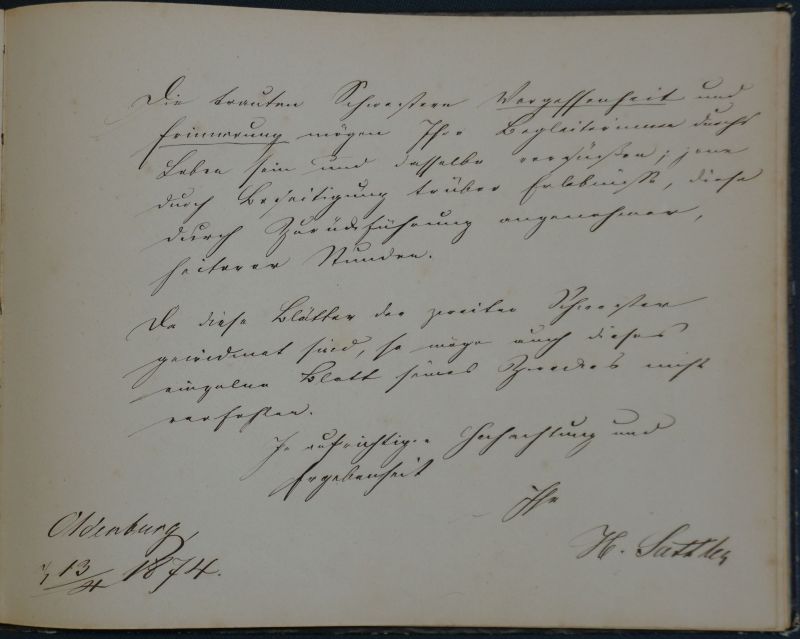 Die trauten Schwestern Vergessenheit und
Erinnerung mögen Ihre Begleiterinnen durchs
Leben sein und dasselbe versüßen; jene
durch Beseitigung trüber Erlebnisse, diese
durch Zurückführung angenehmer,
heiterer Stunden.
Da diese Blätter der zweiten Schwester
gewidmet sind, so möge auch dieses
einzelne Blatt seines Zweckes nicht
verfehlen.
In aufrichtiger Hochachtung und
Ergebenheit
Ihr
H. Sattler
Oldenburg,
13/4 1874.